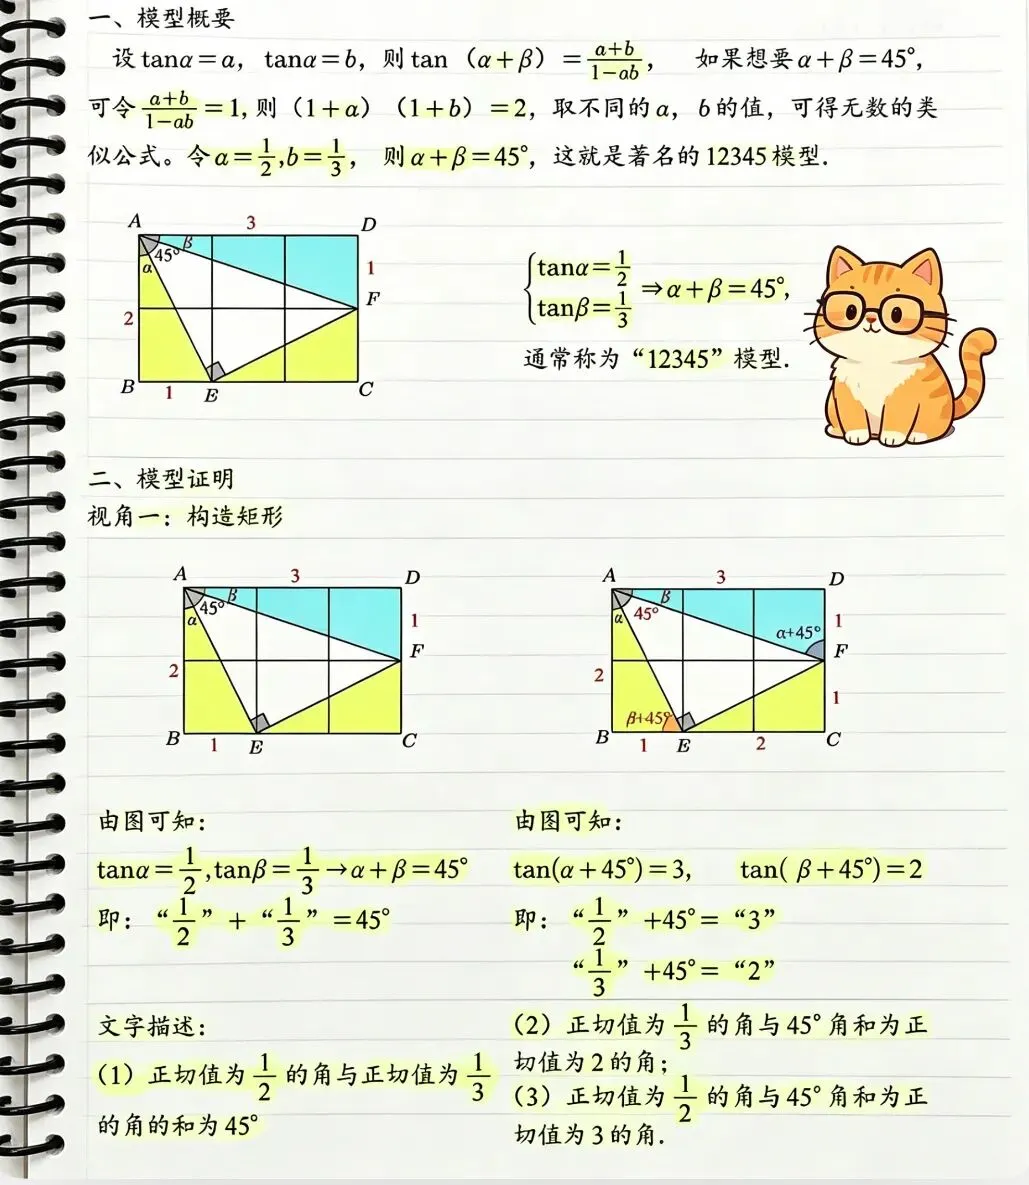 一、模型概要
设tanα=a，tanα=b，则tan（α+β）=\frac{a+b}{1-ab}， 如果想要α+β=45°，
可令\frac{a+b}{1-ab}=1,则（1+a）（1+b）=2，取不同的a，b的值，可得无数的类
似公式。令a=\frac{1}{2},b=\frac{1}{3}，则α+β=45°，这就是著名的12345模型.
A 3 D
β
45°
α 1
F
2
B 1 E C
tanα=\frac{1}{2}
tanβ=\frac{1}{3} ⇒α+β=45°,
通常称为“12345”模型.
二、模型证明
视角一：构造矩形
A 3 D
β
45°
α 1
F
2
B 1 E C
A 3 D
β
45°
α α+45° 1
F
2
β+45° 1
B 1 E 2 C
由图可知：
tanα=\frac{1}{2},tanβ=\frac{1}{3}→α+β=45°
即：“\frac{1}{2}” + “\frac{1}{3}” =45°
文字描述：
（1）正切值为\frac{1}{2}的角与正切值为\frac{1}{3}
的角的和为45°
由图可知：
tan(α+45°)=3， tan( β+45°)=2
即：“\frac{1}{2}” +45°= “3”
“\frac{1}{3}” +45°= “2”
（2）正切值为\frac{1}{3}的角与45°角和为正
切值为2的角；
（3）正切值为\frac{1}{2}的角与45°角和为正
切值为3的角.